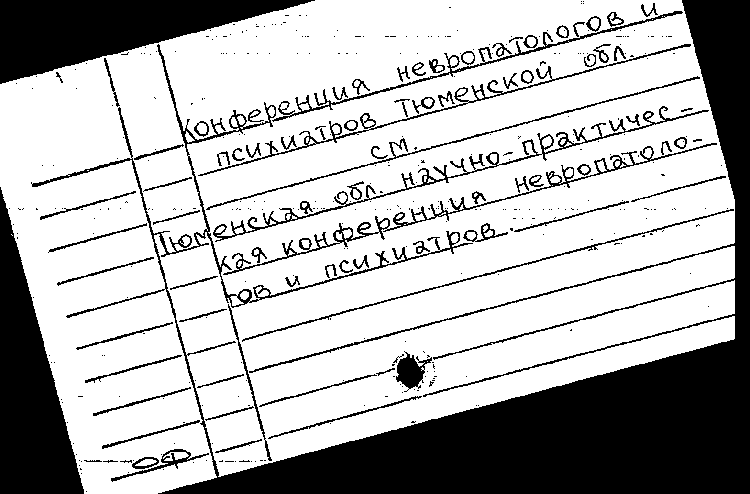 Конференция невропатологов и
психиатров Тюменской обл.
см.
Тюменская обл. научно-практичес-
кая конференция невропатоло-
гов и психиатров.
ОФ